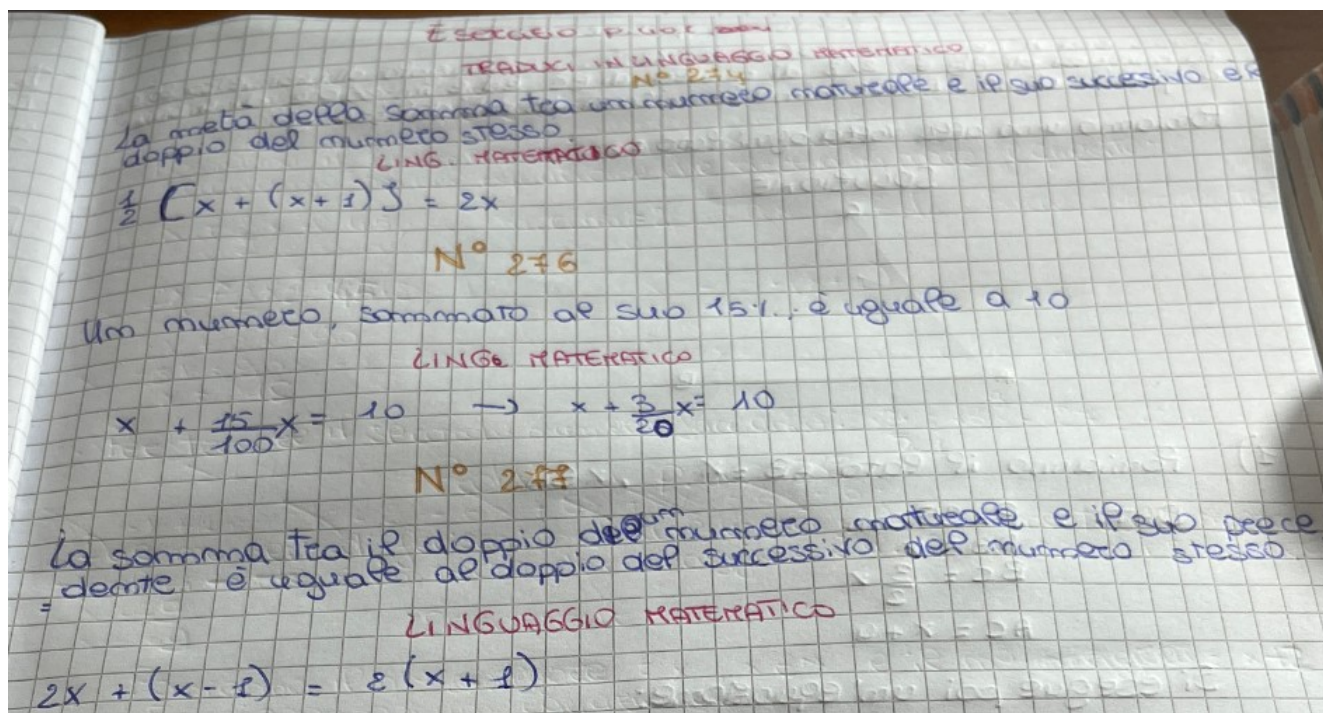 TRADUCI IN LINGUAGGIO MATEMATICO
N° 274
La metà della somma tra un numero naturale e il suo successivo è
doppio del numero stesso.
LING. MATEMATICO
1/2 [x + (x + 1)] = 2x
N° 276
Un numero, sommato al suo 15%, è uguale a 10
LING. MATEMATICO
x + 15/100 x = 10 → x + 3/20 x = 10
N° 277
La somma tra il doppio del un numero naturale e il suo prece
= dente è uguale al doppio del successivo del numero stesso
LINGUAGGIO MATEMATICO
2x + (x - 1) = 2(x + 1)